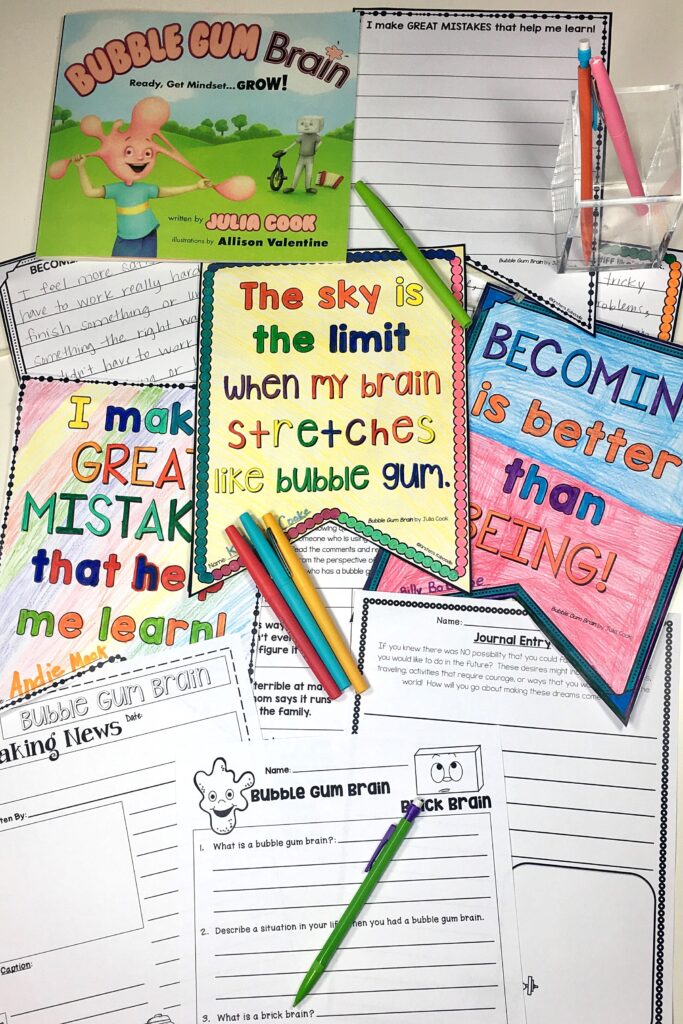 BUBBLE GUM Brain
Ready, Get Mindset...GROW!
written by JULIA COOK
illustrations by Allison Valentine
I make GREAT MISTAKES that help me learn!
Bubble Gum Brain by Julia Cook
tricky
problems,
I feel more
have to work really hard
finish something or
something the right
didn't have to work
The sky is
the limit
when my brain
stretches
like bubble gum.
Bubble Gum Brain by Julia Cook
Name:
Cooke
BECOMIN
is better
than
BEING!
Billy
Bubble Gum Brain by Julia Cook
I mak
GREAT
MISTAK
that help
me learn!
Andie Mook
someone who is using
read the comments and re
from the perspective o
who has a bubble g
ways
t even
figure it
terrible at ma
mom says it runs
the family.
Name:
Journal Entry
If you knew there was NO possibility that you could
you would like to do in the future? These desires might in
traveling, activities that require courage, or ways that you w the
world! How will you go about making these dreams come
Bubble Gum Brain
aking News Date:
ten By:
Caption:
Name:
Bubble Gum Brain
Brick Brain
1. What is a bubble gum brain?:
2. Describe a situation in your life when you had a bubble gum brain.
3. What is a brick brain?